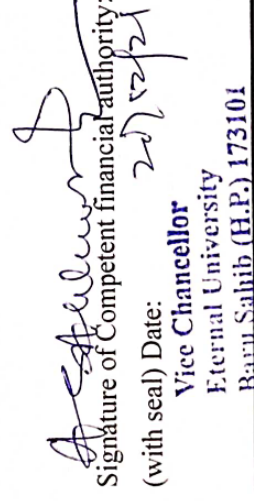 Signature of Competent financial authority:
(with seal) Date:
Vice Chancellor
Eternal University
Baru Sahib (H.P.) 173101